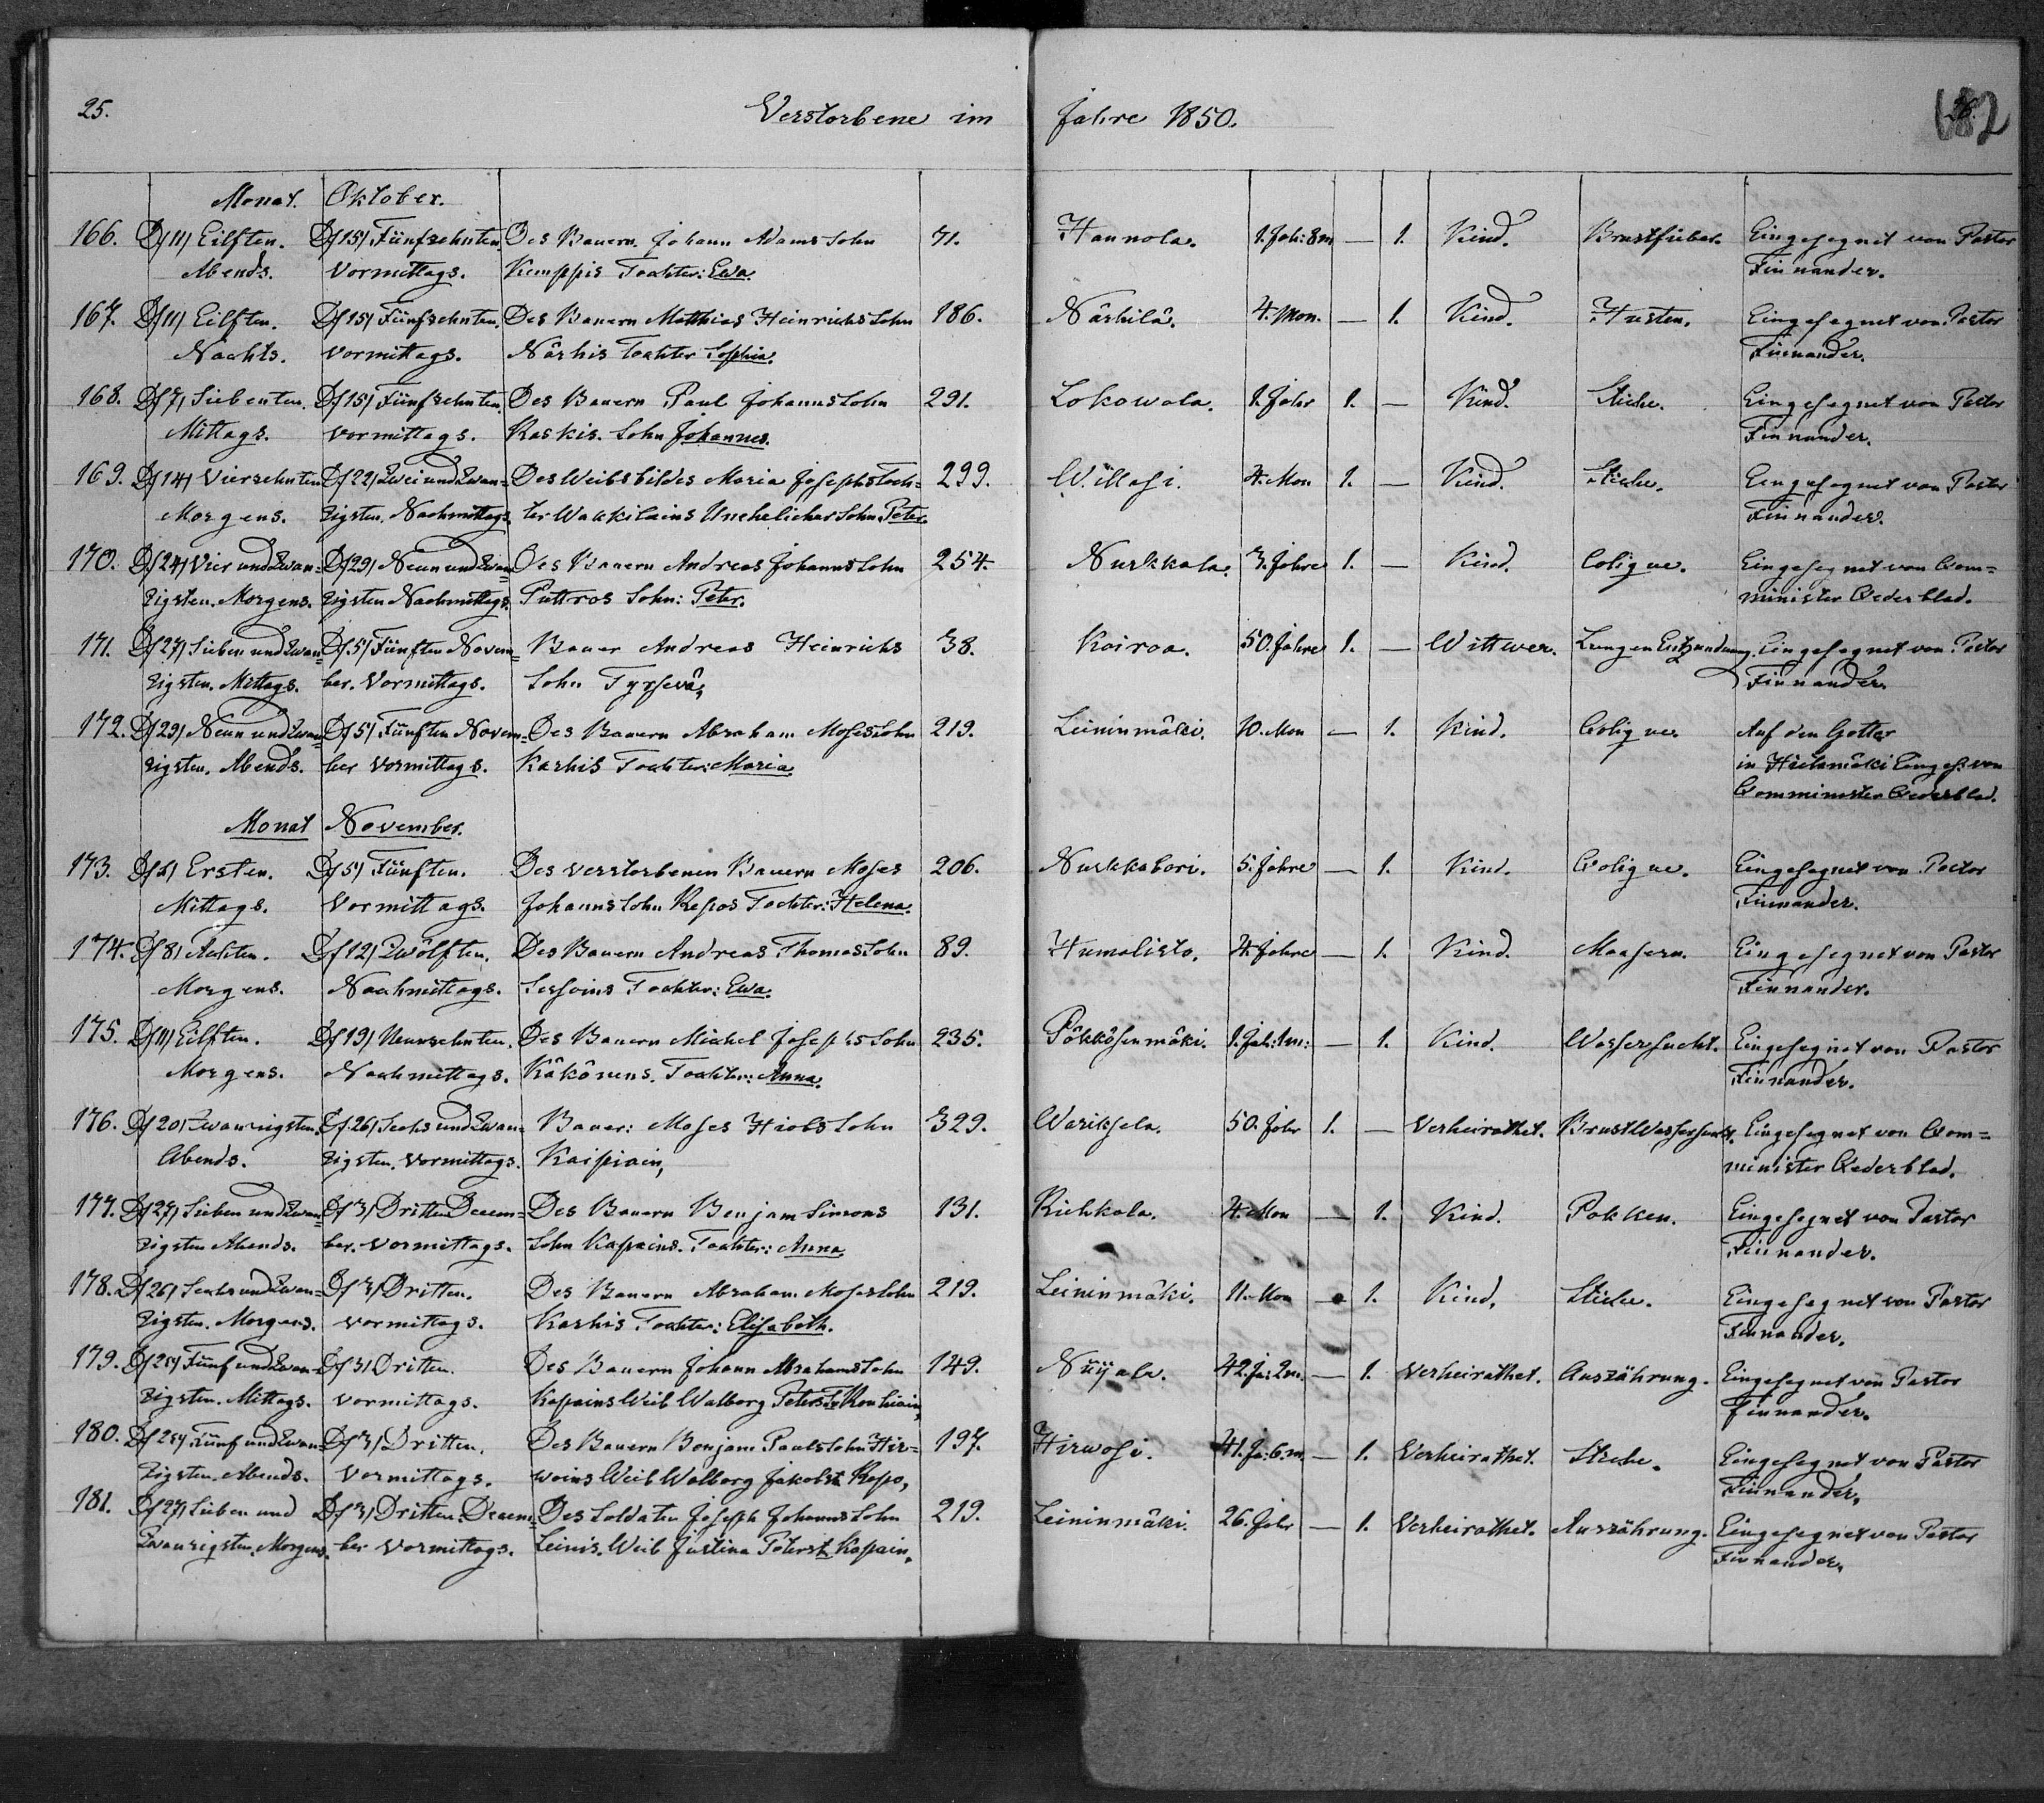 25.
Verstorbene im Jahre 1850.
682
Monat. Oktober.
166. D/11/ Eilften. D/15/ Fünfzehnten. Des Bauern Johann Adams Sohn 71. Hannola. 1. Jah: 8 m — 1. Kind. Brustfieber. Eingesegnet von Pastor
Abends. Vormittags. Kemppis Tochter: Ewa. Finnander.
167. D/11/ Eilften. D/15/ Fünfzehnten. Des Bauern Matthias Heinrichs Sohn 186. Närhilä. 4. Mon. — 1. Kind. Husten. Eingesegnet von Pastor
Nachts. Vormittags. Närhis Tochter Sophia. Finnander.
168. D/7/ Siebenten. D/15/ Fünfzehnten. Des Bauern Paul Johanns Sohn 291. Lokowala. 1. Jahr 1. — Kind. Stiche. Eingesegnet von Pastor
Mittags. Vormittags. Raskis. Sohn Johannes. Finnander.
169. D/14/ Vierzehnten D/22/ Zwei und Zwan= Des Weibsbildes Maria Josephs Toch= 299. Willasi. 4. Mon 1. — Kind. Stiche. Eingesegnet von Pastor
Morgens. zigsten. Nachmittags. ter Wakkilains Unehelicher Sohn. Peter. Finnander.
170. D/24/ Vier und Zwan= D/29/ Neun und Zwan= Des Bauern Andreas Johanns Sohn 254. Nurkkala. 3. Jahre 1. — Kind. Colique. Eingesegnet von Com=
zigsten. Morgens. zigsten Nachmittags. Puttros Sohn: Peter. minister Cederblad.
171. D/27/ Sieben und Zwan= D/5/ Fünften Novem= Bauer Andreas Heinrichs 38. Koiroa. 50. Jahre 1. — Wittwer. Lungen Entzündung. Eingesegnet von Pastor
zigsten. Mittags. ber. Vormittags. Sohn Tyrsevä, Finnander.
172. D/29/ Neun und Zwan= D/5/ Fünften Novem= Des Bauern Abraham Moses Sohn 219. Leininmäki. 10. Mon — 1. Kind. Colique. Auf den Gottar
zigsten. Abends. ber Vormittags. Karhis Tochter: Maria. in Hietamäki Einges. von
Comminister Cederblad.
Monat November.
173. D/1/ Ersten. D/5/ Fünften. Des verstorbenen Bauern Moses 206. Nurkkabori. 5. Jahre — 1. Kind. Colique. Eingesegnet von Pastor
Mittags. Vormittags. Johanns Sohn Repos Tochter: Helena. Finnander.
174. D/8/ Achten. D/12/ Zwölften. Des Bauern Andreas Thomas Sohn 89. Humalisto. 4. Jahre — 1. Kind. Maasern. Eingesegnet von Pastor
Morgens. Nachmittags. Sessoins Tochter: Ewa. Finnander.
175. D/11/ Eilften. D/19/ Neunzehnten. Des Bauern Michel Josephs Sohn 235. Pökkösenmäki. 1. Jah: 1 m: — 1. Kind. Wassersucht. Eingesegnet von Pastor
Morgens. Nachmittags. Käkönens. Tochter: Anna. Finnander.
176. D/20/ Zwanzigsten. D/26/ Sechs und Zwan= Bauer: Moses Hiobs Sohn 329. Wariksela. 50. Jahr 1. — Verheirathet. Brust Wassersucht. Eingesegnet von Com=
Abends. zigsten. Vormittags. Kaipiain, minister Cederblad.
177. D/27/ Sieben und Zwan= D/3/ Dritten Decem= Des Bauern Benjam Simons 131. Riehkola. 4. Mon — 1. Kind. Pokken. Eingesegnet von Pastor
zigsten Abends. ber. Vormittags. Sohn Kapains. Tochter: Anna Finnander.
178. D/26/ Sechs und Zwan= D/3/ Dritten. Des Bauern Abraham Moses Sohn 219. Leininmäki. 11. Mon — 1. Kind. Stiche. Eingesegnet von Pastor
zigsten. Morgens. vormittags. Karhis Tochter: Elisabeth. Finnander.
179. D/25/ Fünf und Zwan= D/3/ Dritten. Des Bauern Johann Abrahams Sohn 149. Nüjala. 42. Ja: 2 m. — 1. Verheirathet. Auszährung. Eingesegnet von Pastor
zigsten. Mittags. vormittags. Kapains Weib Walborg Peterst. Rouhiain, Finnander.
180. D/25/ Fünf und Zwan= D/3/ Dritten. Des Bauern Benjam Pauls Sohn Hir= 197. Hirwosi. 41. Ja: 6. m — 1. Verheirathet. Stiche. Eingesegnet von Pastor
zigsten. Abends. Vormittags. woins Weib Walborg Jakobst. Repo, Finnander.
181. D/27/ Sieben und D/3/ Dritten Decem= Des Soldaten Joseph Johanns Sohn 219. Leininmäki. 26. Jahr — 1. Verheirathet. Auszährung. Eingesegnet von Pastor
Zwanzigsten. Morgens. ber Vormittags. Leinis. Weib Justina Peterst. Kapain, Finnander.